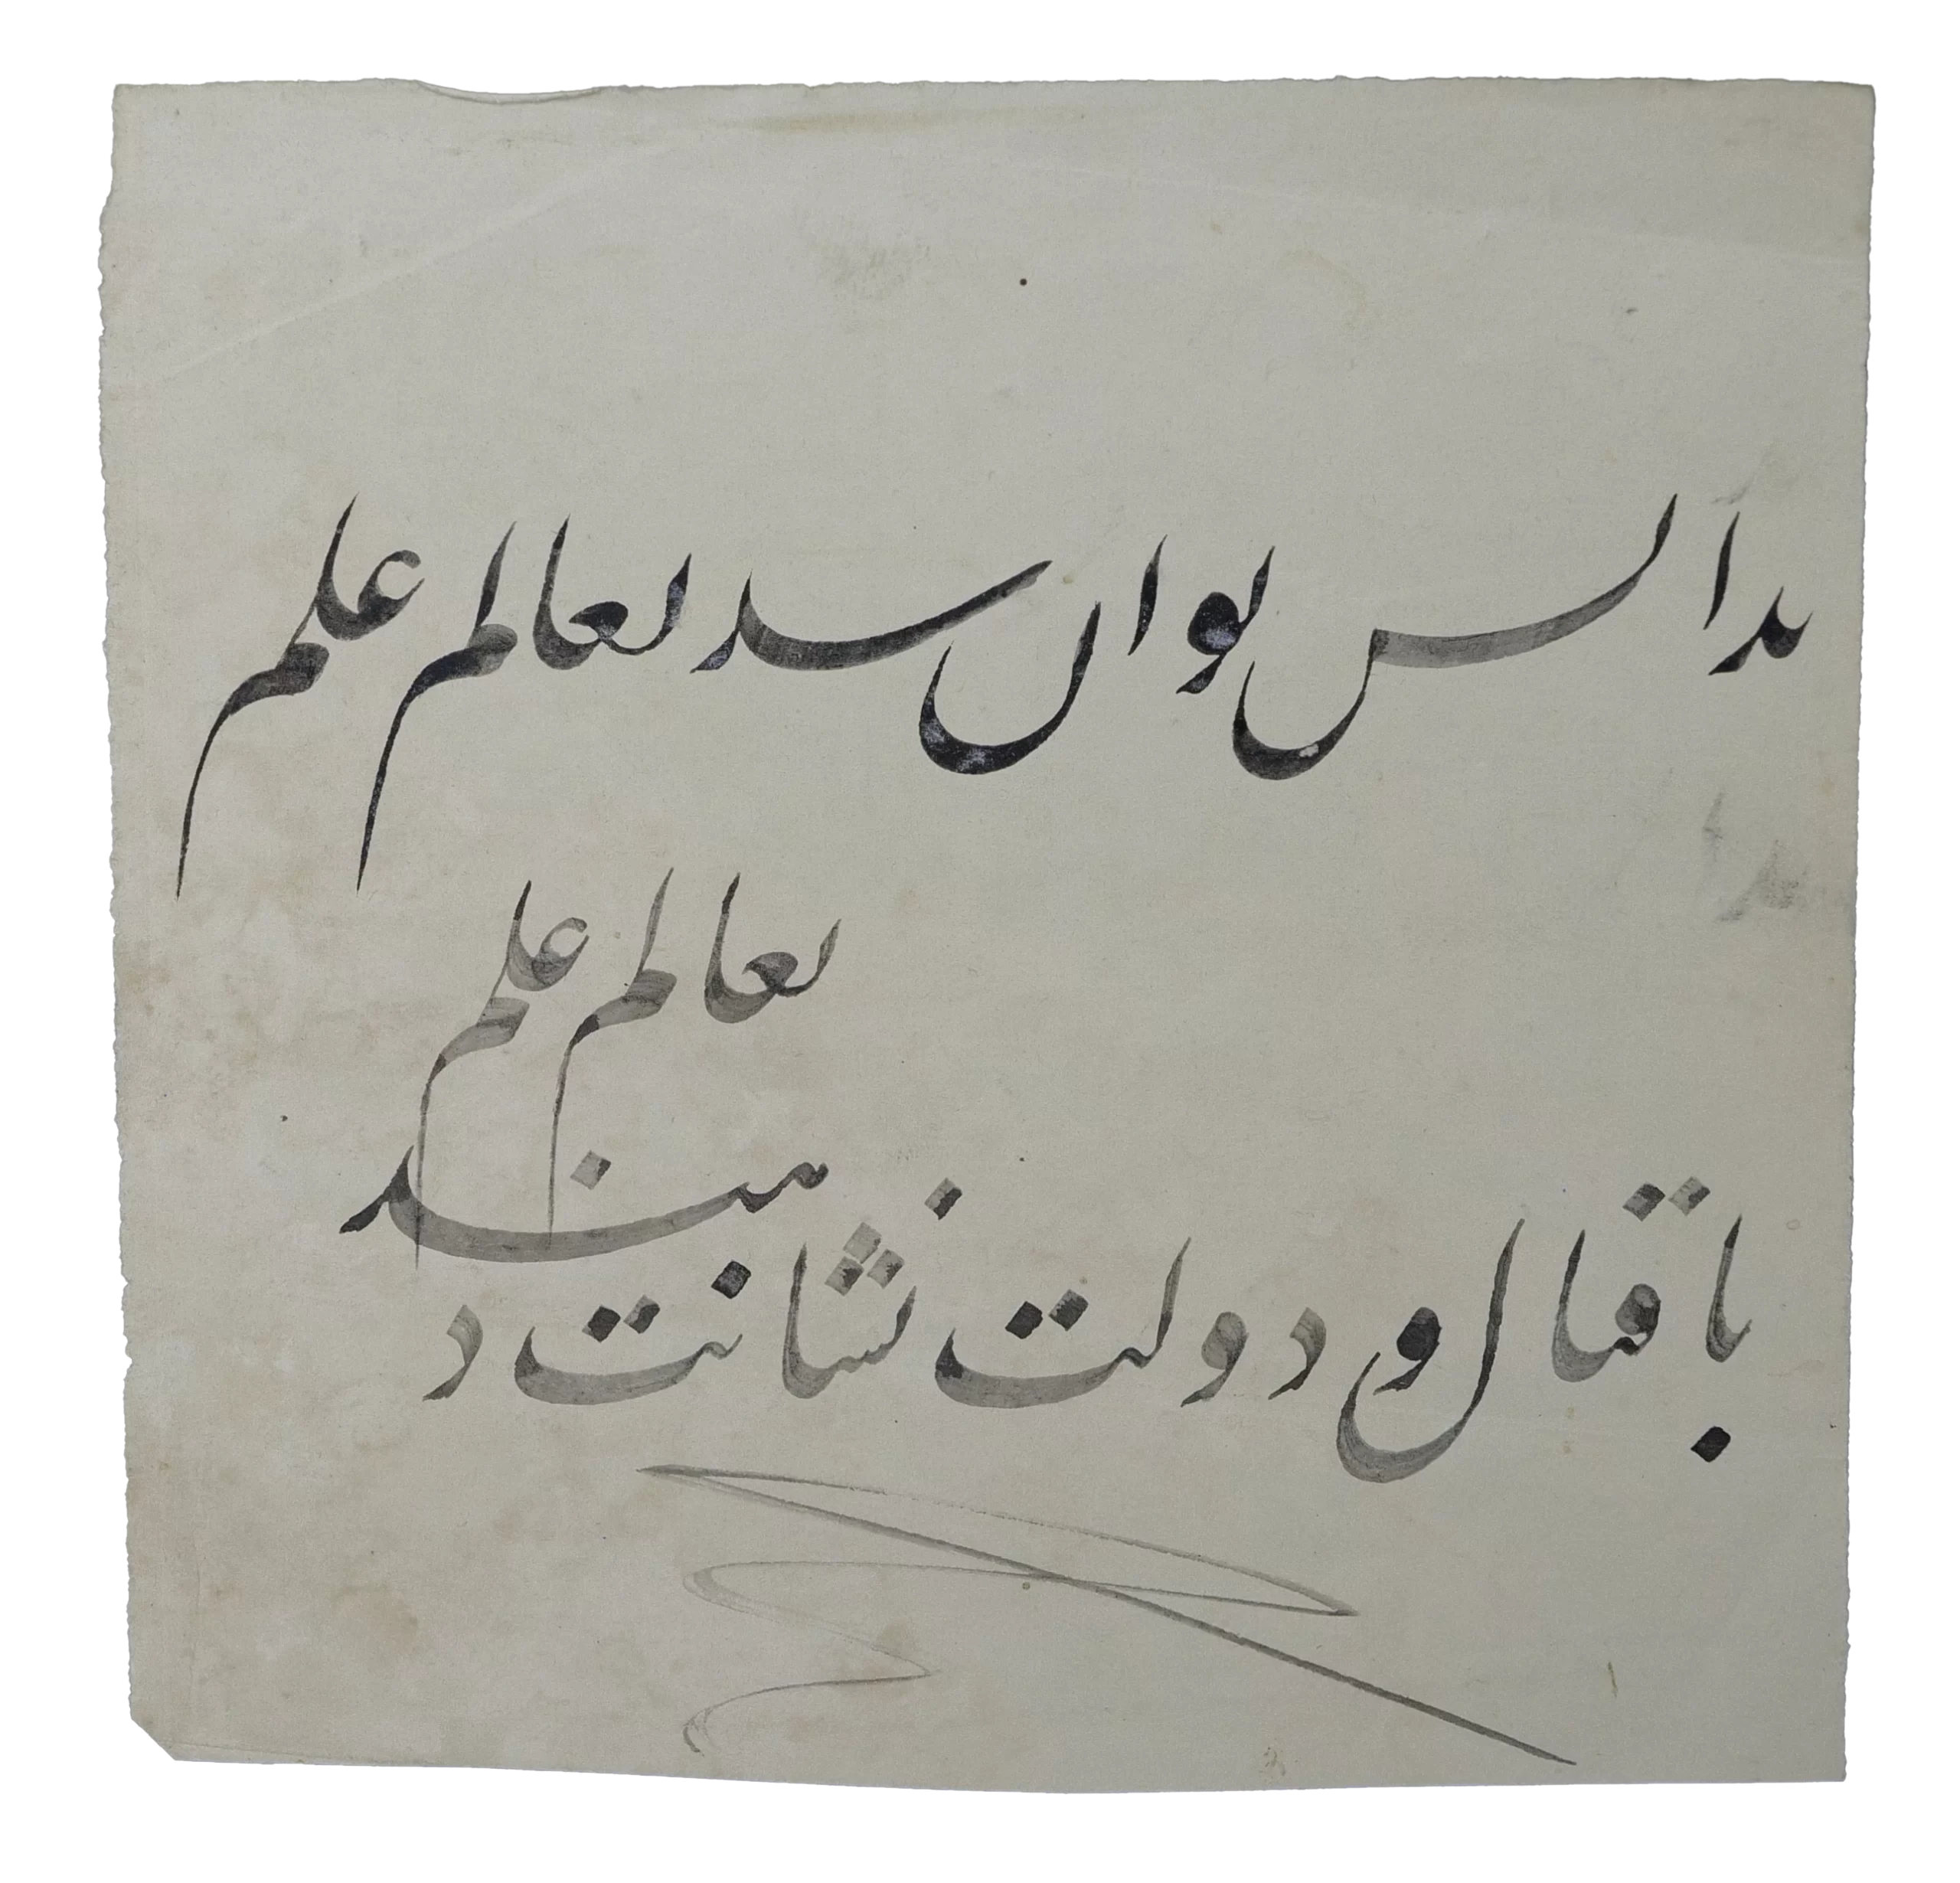 بدانش توان شد بعالم علم
بعالم علم
باقبال و دولت نشانت دهند